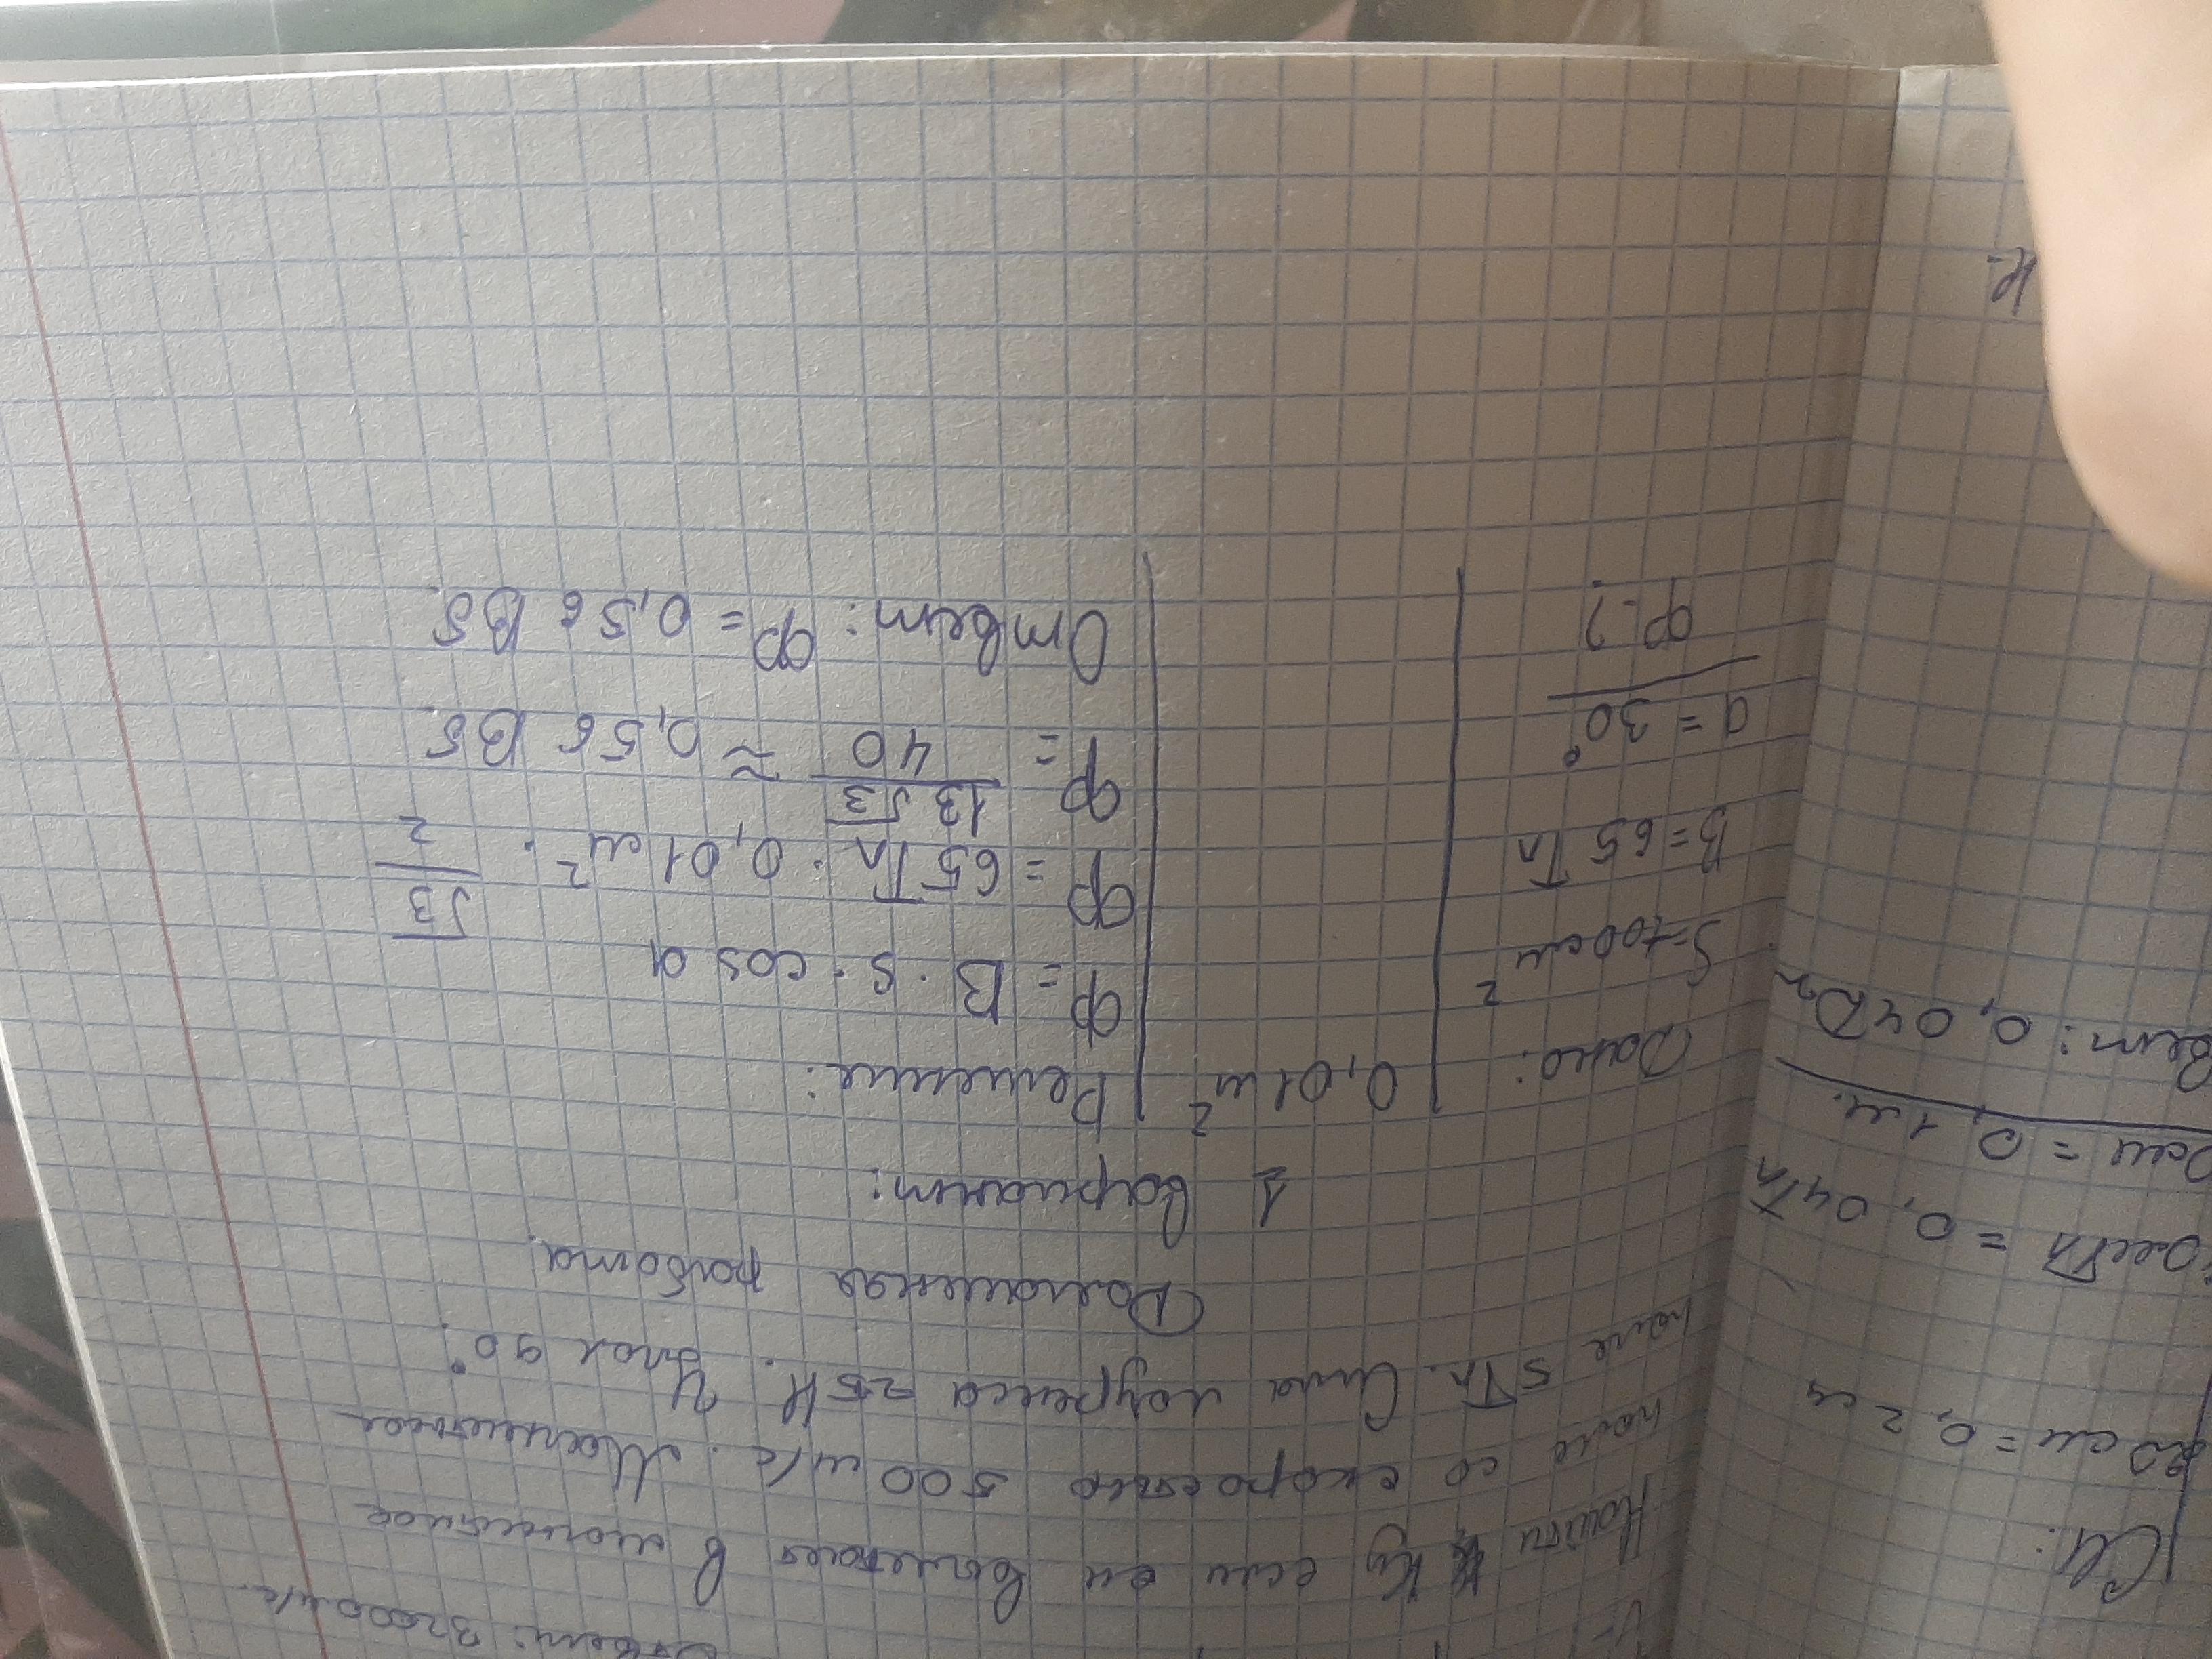 Ответ: 32000 м/с.
Найти Кл если он вошёл в магнитное
поле со скоростью 500 м/с. Магнитное
поле 5Тл. Сила лоуренса 25 Н. Угол 90°.
Домашняя работа.
1 вариант:
Дано:
S=100см²
B=65 Тл
α=30°
Φ-?
0,01 м²
Решение:
Φ = B · S · cos α
Φ = 65 Тл · 0,01 м² · √3/2
Φ = 13√3/40 ≈ 0,56 Вб.
Ответ: Φ = 0,56 Вб.
СИ:
20 см = 0,2 м
= 0,04Тл
= 0,1 м.
вет: 0,04
н.